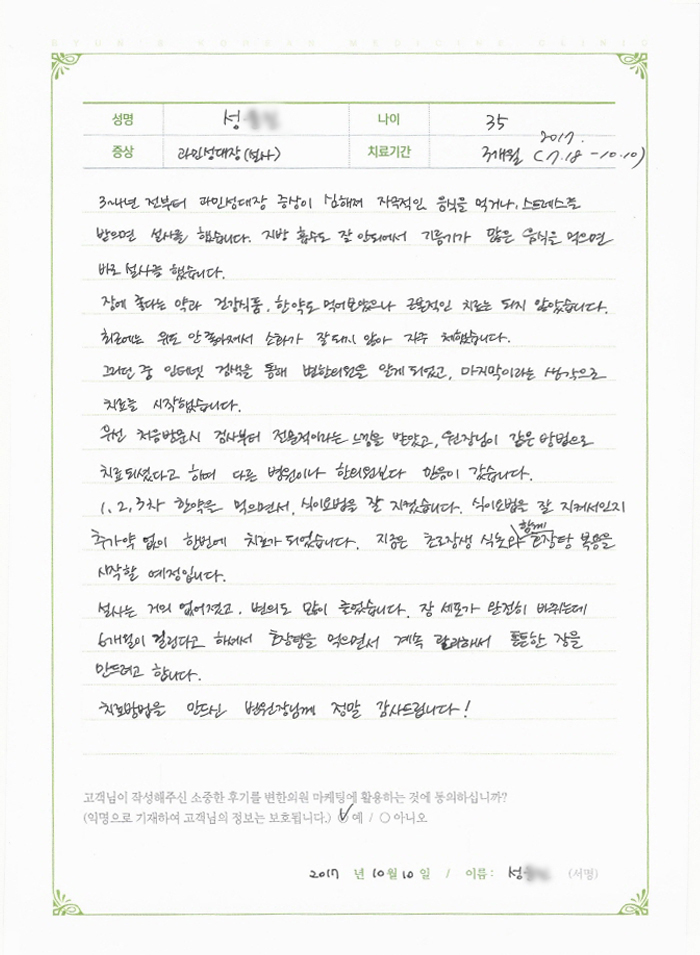 BYUN'S KOREAN MEDICINE CLINIC
성명 성 나이 35
증상 과민성대장(설사) 치료기간 3개월 (2017. 7.18 - 10.10)
3~4년 전부터 과민성대장 증상이 심해져 자극적인 음식을 먹거나, 스트레스를
받으면 설사를 했습니다. 지방 흡수도 잘 안되어서 기름기가 많은 음식을 먹으면
바로 설사를 했습니다.
장에 좋다는 약과 건강식품, 한약도 먹어보았으나 근본적인 치료는 되지 않았습니다.
최근에는 위도 안좋아져서 소화가 잘되지 않아 자주 체했습니다.
그러던 중 인터넷 검색을 통해 변한의원을 알게 되었고, 마지막이라는 생각으로
치료를 시작했습니다.
우선 처음방문시 검사부터 전문적이라는 느낌을 받았고, 원장님이 같은 방법으로
치료되셨다고 하며 다른 병원이나 한의원보다 믿음이 갔습니다.
1, 2, 3차 한약을 먹으면서, 식이요법을 잘 지켰습니다. 식이요법을 잘 지켜서인지
추가약 없이 한번에 치료가 되었습니다. 지금은 초로장생 식초와 함께 호장탕 복용을
시작할 예정입니다.
설사는 거의 없어졌고, 변의도 많이 줄었습니다. 장 세포가 완전히 바뀌는데
6개월이 걸린다고 하여서 호장탕을 먹으면서 계속 관리해서 튼튼한 장을
만드려고 합니다.
치료방법을 만드신 변원장님께 정말 감사드립니다!
고객님이 작성해주신 소중한 후기를 변한의원 마케팅에 활용하는 것에 동의하십니까?
(익명으로 기재하여 고객님의 정보는 보호됩니다.) ○ 예 / ○ 아니오
2017 년 10월 10일 / 이름 : 성 (서명)